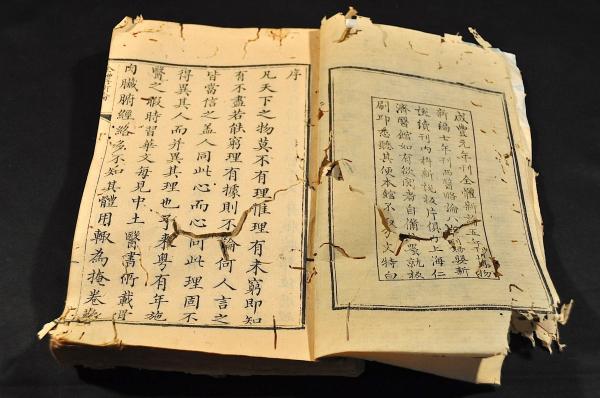 咸豐元年刊全體新論五年物
新編七年刊西醫略論刊婦嬰新
說續刊內科新說板片俱上海仁
濟醫館如有欲閱者自備墨就板
刷印悉聽其便本館不文特白
序
凡天下之物莫不有理惟理有未窮即知
有不盡若能窮理有據則不論何人言之
皆當信之蓋人同此心而心同此理固不
得異其人而并異其理也予來粵有年施
醫之暇時習華文每見中土醫書所載骨
肉臟腑經絡多不知其體用輒為掩卷